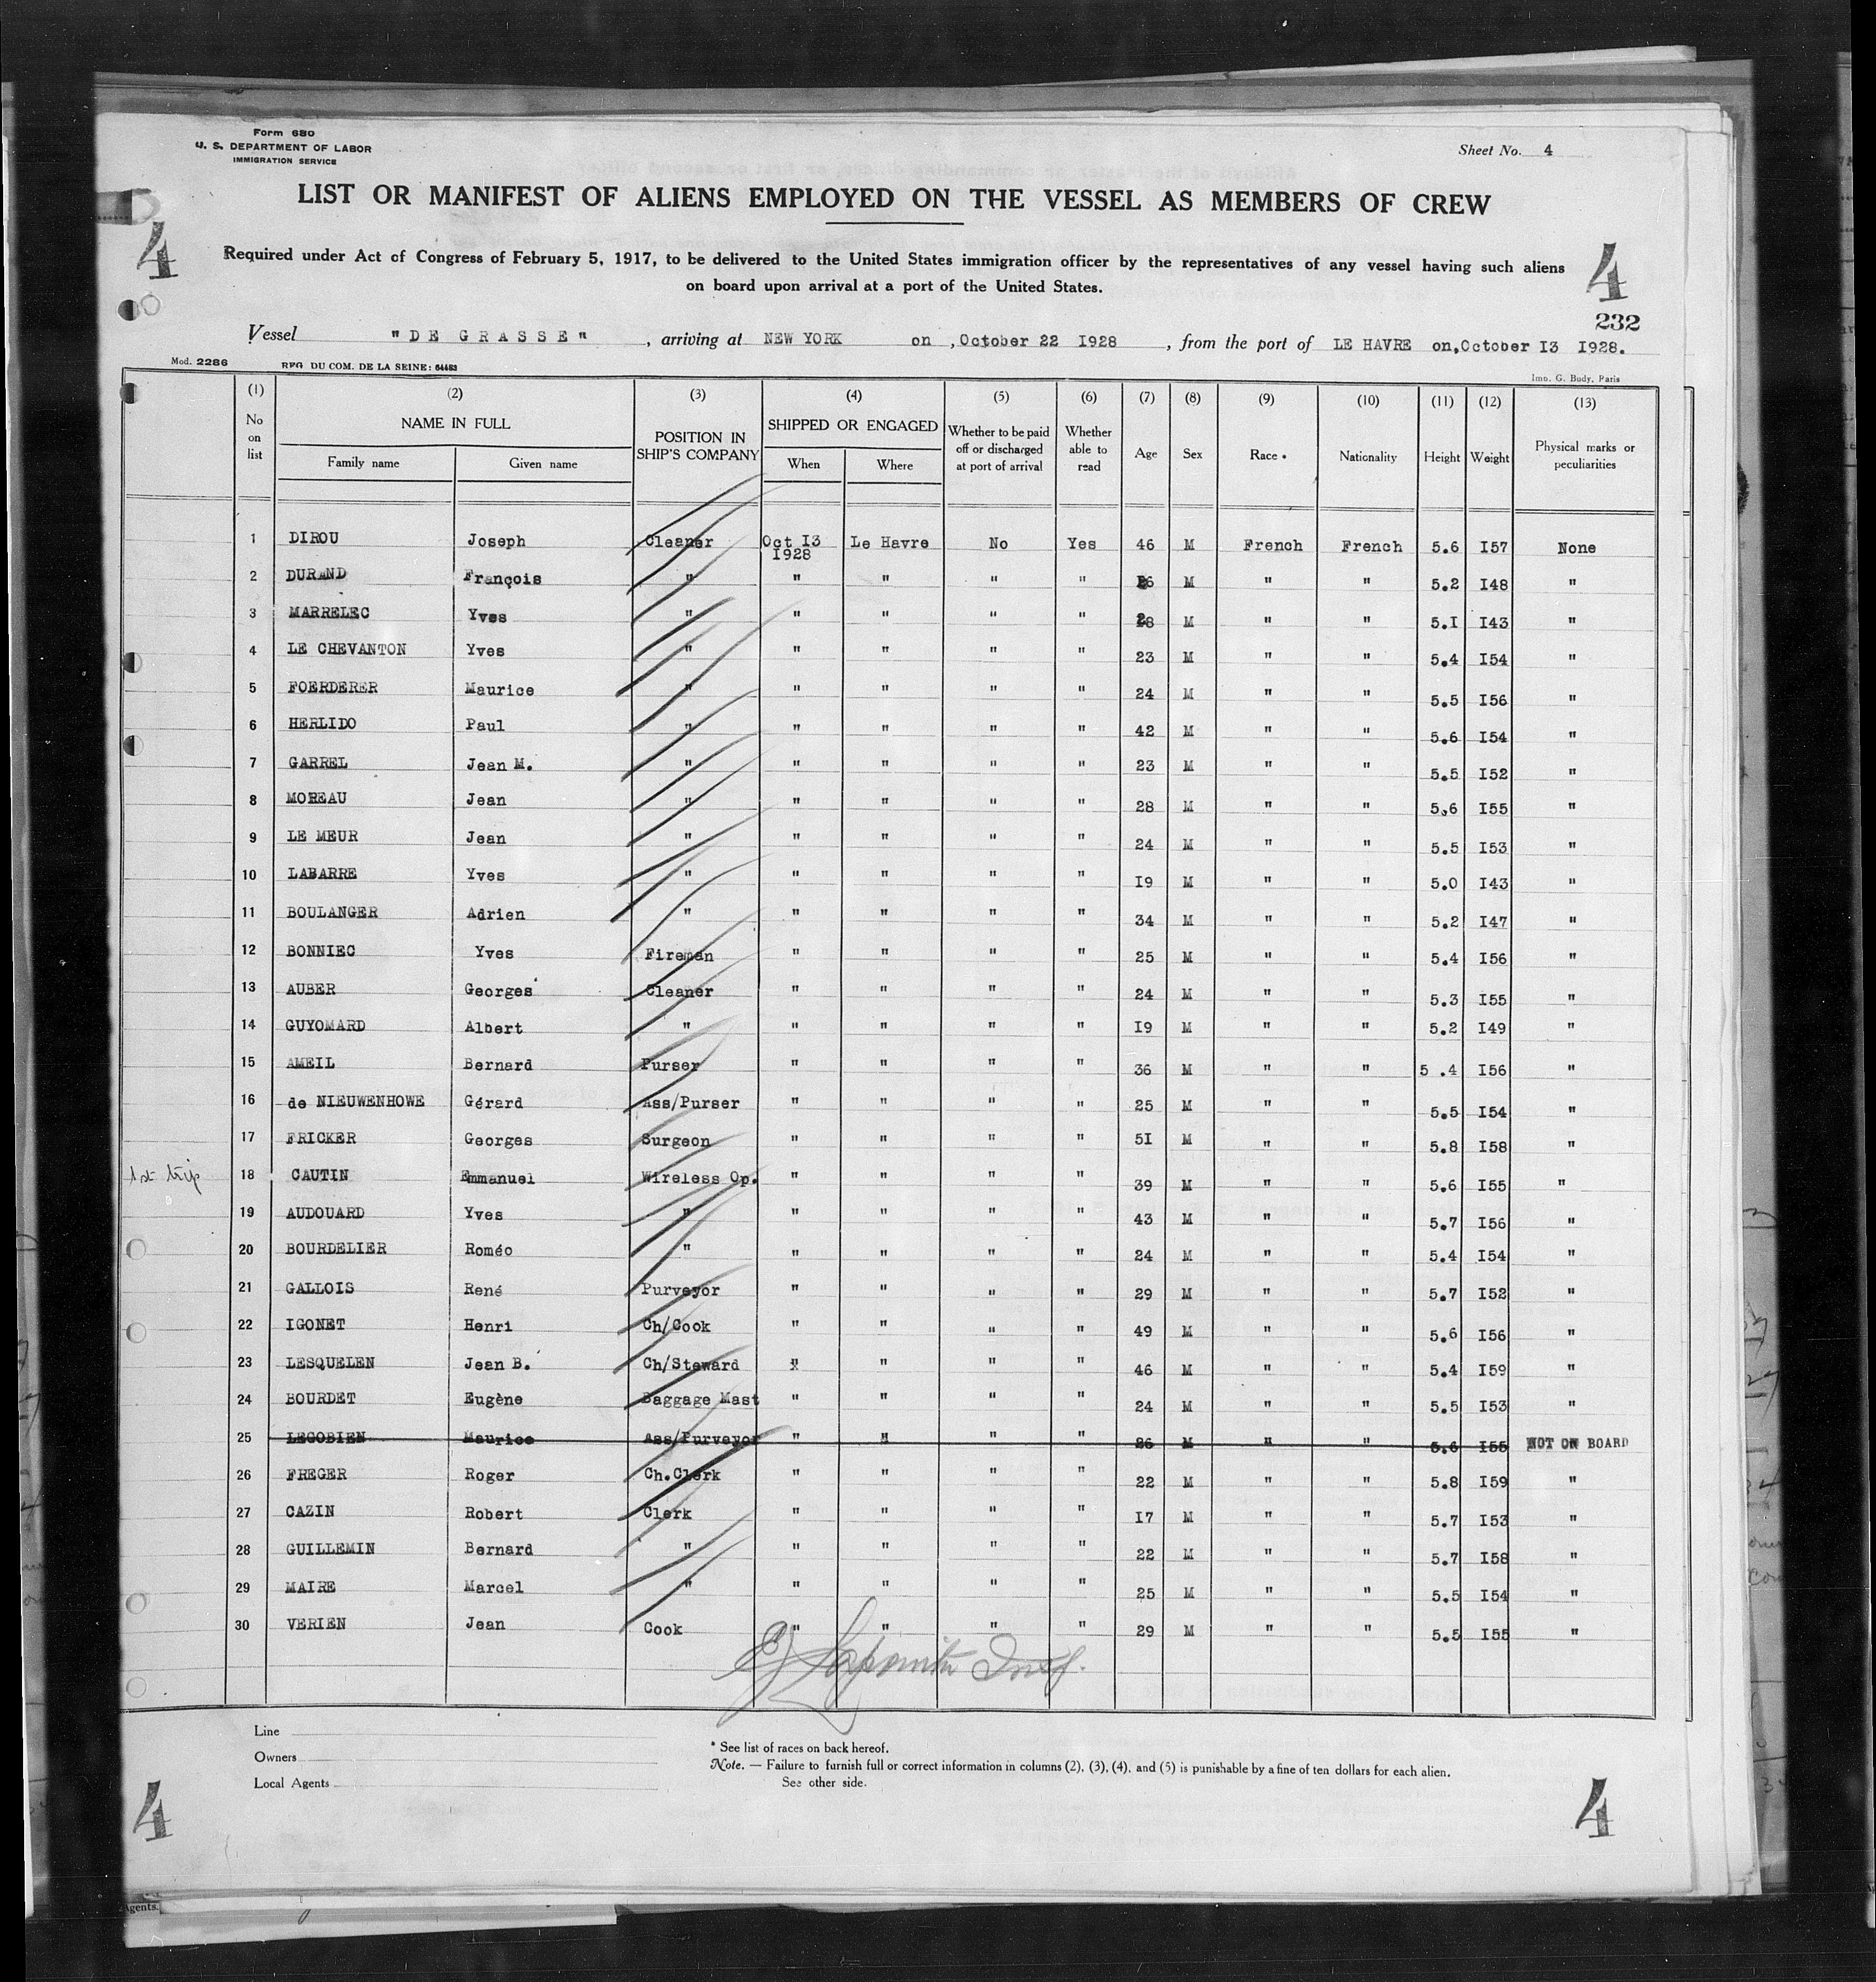 Form 680
U. S. DEPARTMENT OF LABOR
IMMIGRATION SERVICE
Sheet No. 4
LIST OR MANIFEST OF ALIENS EMPLOYED ON THE VESSEL AS MEMBERS OF CREW
4
4
Required under Act of Congress of February 5, 1917, to be delivered to the United States immigration officer by the representatives of any vessel having such aliens
on board upon arrival at a port of the United States.
232
Vessel "DE GRASSE" , arriving at NEW YORK on , October 22 I928 , from the port of LE HAVRE on, October I3 I928.
Mod. 2286 REG DU COM. DE LA SEINE: 64483 Imp. G. Budy, Paris
(1) (2) (3) (4) (5) (6) (7) (8) (9) (10) (11) (12) (13)
No on list NAME IN FULL Family name Given name POSITION IN SHIP'S COMPANY SHIPPED OR ENGAGED When Where Whether to be paid off or discharged at port of arrival Whether able to read Age Sex Race * Nationality Height Weight Physical marks or peculiarities
1 DIROU Joseph Cleaner Oct I3 I928 Le Havre No Yes 46 M French French 5.6 I57 None
2 DURAND François " " " " " 6 M " " 5.2 I48 "
3 MARRELEC Yves " " " " " 28 M " " 5.I I43 "
4 LE CHEVANTON Yves " " " " " 23 M " " 5.4 I54 "
5 FOERDERER Maurice " " " " " 24 M " " 5.5 I56 "
6 HERLIDO Paul " " " " " 42 M " " 5.6 I54 "
7 GARREL Jean M. " " " " " 23 M " " 5.5 I52 "
8 MOREAU Jean " " " " " 28 M " " 5.6 I55 "
9 LE MEUR Jean " " " " " 24 M " " 5.5 I53 "
10 LABARRE Yves " " " " " I9 M " " 5.0 I43 "
11 BOULANGER Adrien " " " " " 34 M " " 5.2 I47 "
12 BONNIEC Yves Fireman " " " " 25 M " " 5.4 I56 "
13 AUBER Georges Cleaner " " " " 24 M " " 5.3 I55 "
14 GUYOMARD Albert " " " " " I9 M " " 5.2 I49 "
15 AMEIL Bernard Purser " " " " 36 M " " 5 .4 I56 "
16 de NIEUWENHOWE Gérard Ass/Purser " " " " 25 M " " 5.5 I54 "
17 FRICKER Georges Surgeon " " " " 5I M " " 5.8 I58 "
1st trip 18 CAUTIN Emmanuel Wireless Op. " " " " 39 M " " 5.6 I55 "
19 AUDOUARD Yves " " " " " 43 M " " 5.7 I56 "
20 BOURDELIER Roméo " " " " " 24 M " " 5.4 I54 "
21 GALLOIS René Purveyor " " " " 29 M " " 5.7 I52 "
22 IGONET Henri Ch/Cook " " " " 49 M " " 5.6 I56 "
23 LESQUELEN Jean B. Ch/Steward " " " " 46 M " " 5.4 I59 "
24 BOURDET Eugène Baggage Mast " " " " 24 M " " 5.5 I53 "
25 LEGOBIEN Maurice Ass/Purveyor " " " " 26 M " " 5.6 I55 NOT ON BOARD
26 FREGER Roger Ch.Clerk " " " " 22 M " " 5.8 I59 "
27 CAZIN Robert Clerk " " " " I7 M " " 5.7 I53 "
28 GUILLEMIN Bernard " " " " " 22 M " " 5.7 I58 "
29 MAIRE Marcel " " " " " 25 M " " 5.5 I54 "
30 VERIEN Jean Cook " " " " 29 M " " 5.5 I55 "
Line
Owners
Local Agents
* See list of races on back hereof.
Note. — Failure to furnish full or correct information in columns (2), (3), (4), and (5) is punishable by a fine of ten dollars for each alien.
See other side.
4
4
Agents.